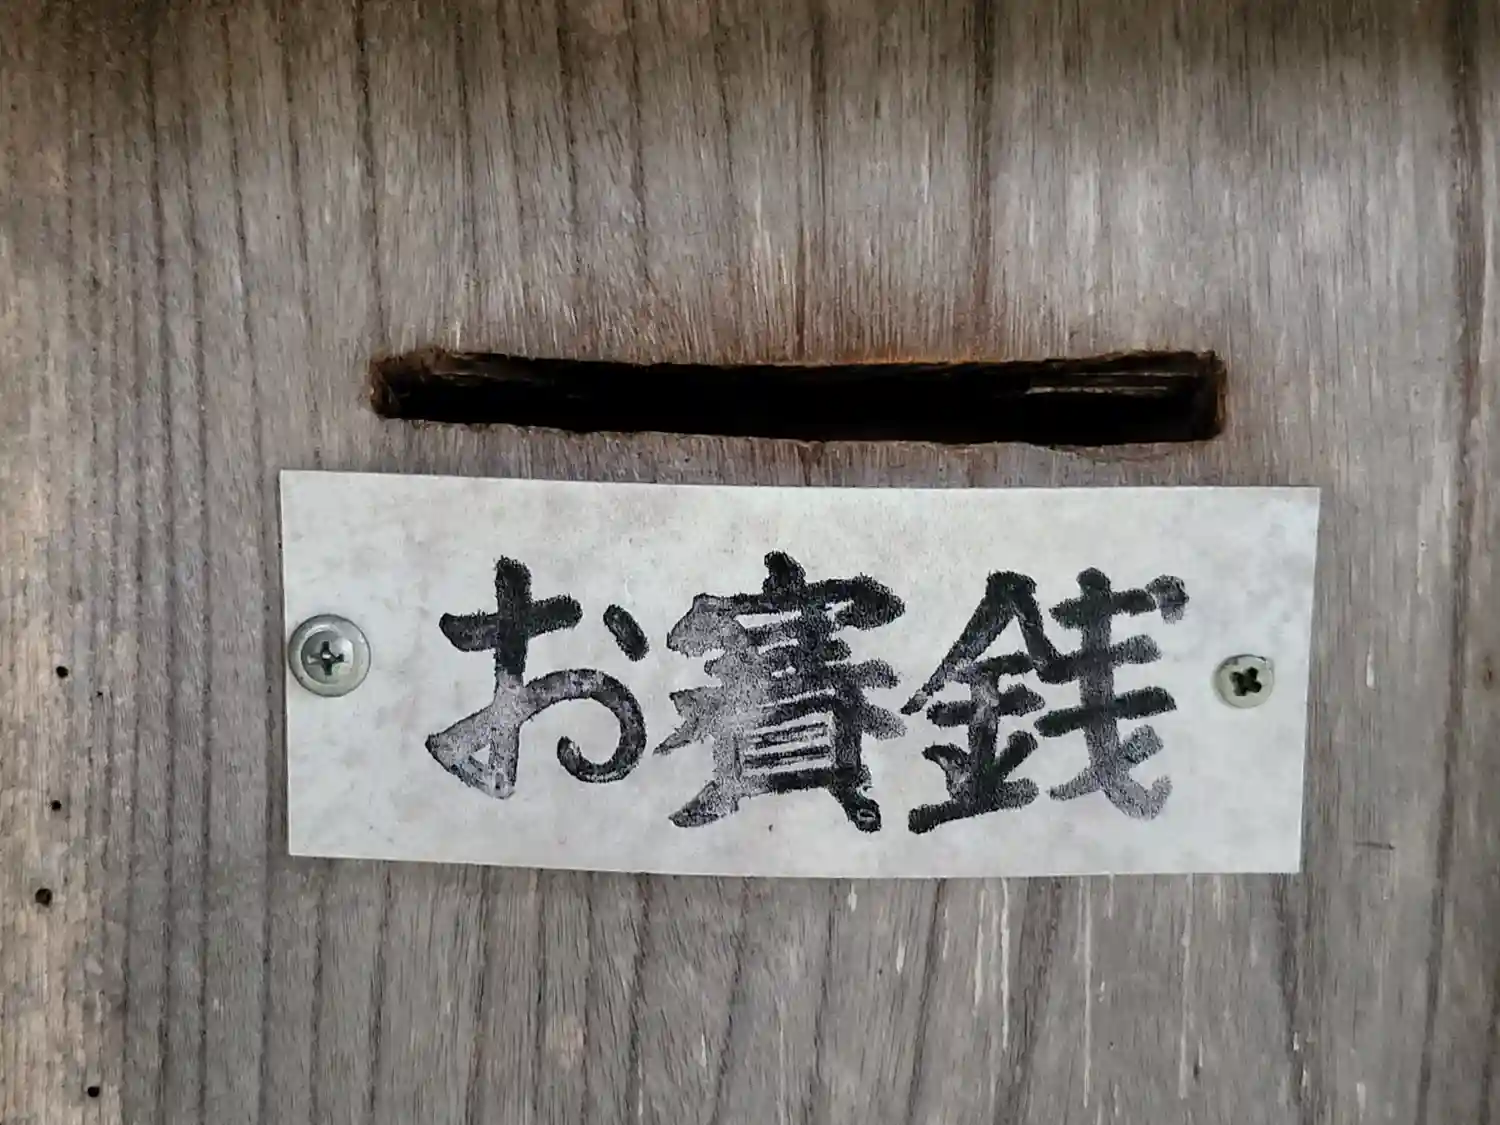 お賽銭